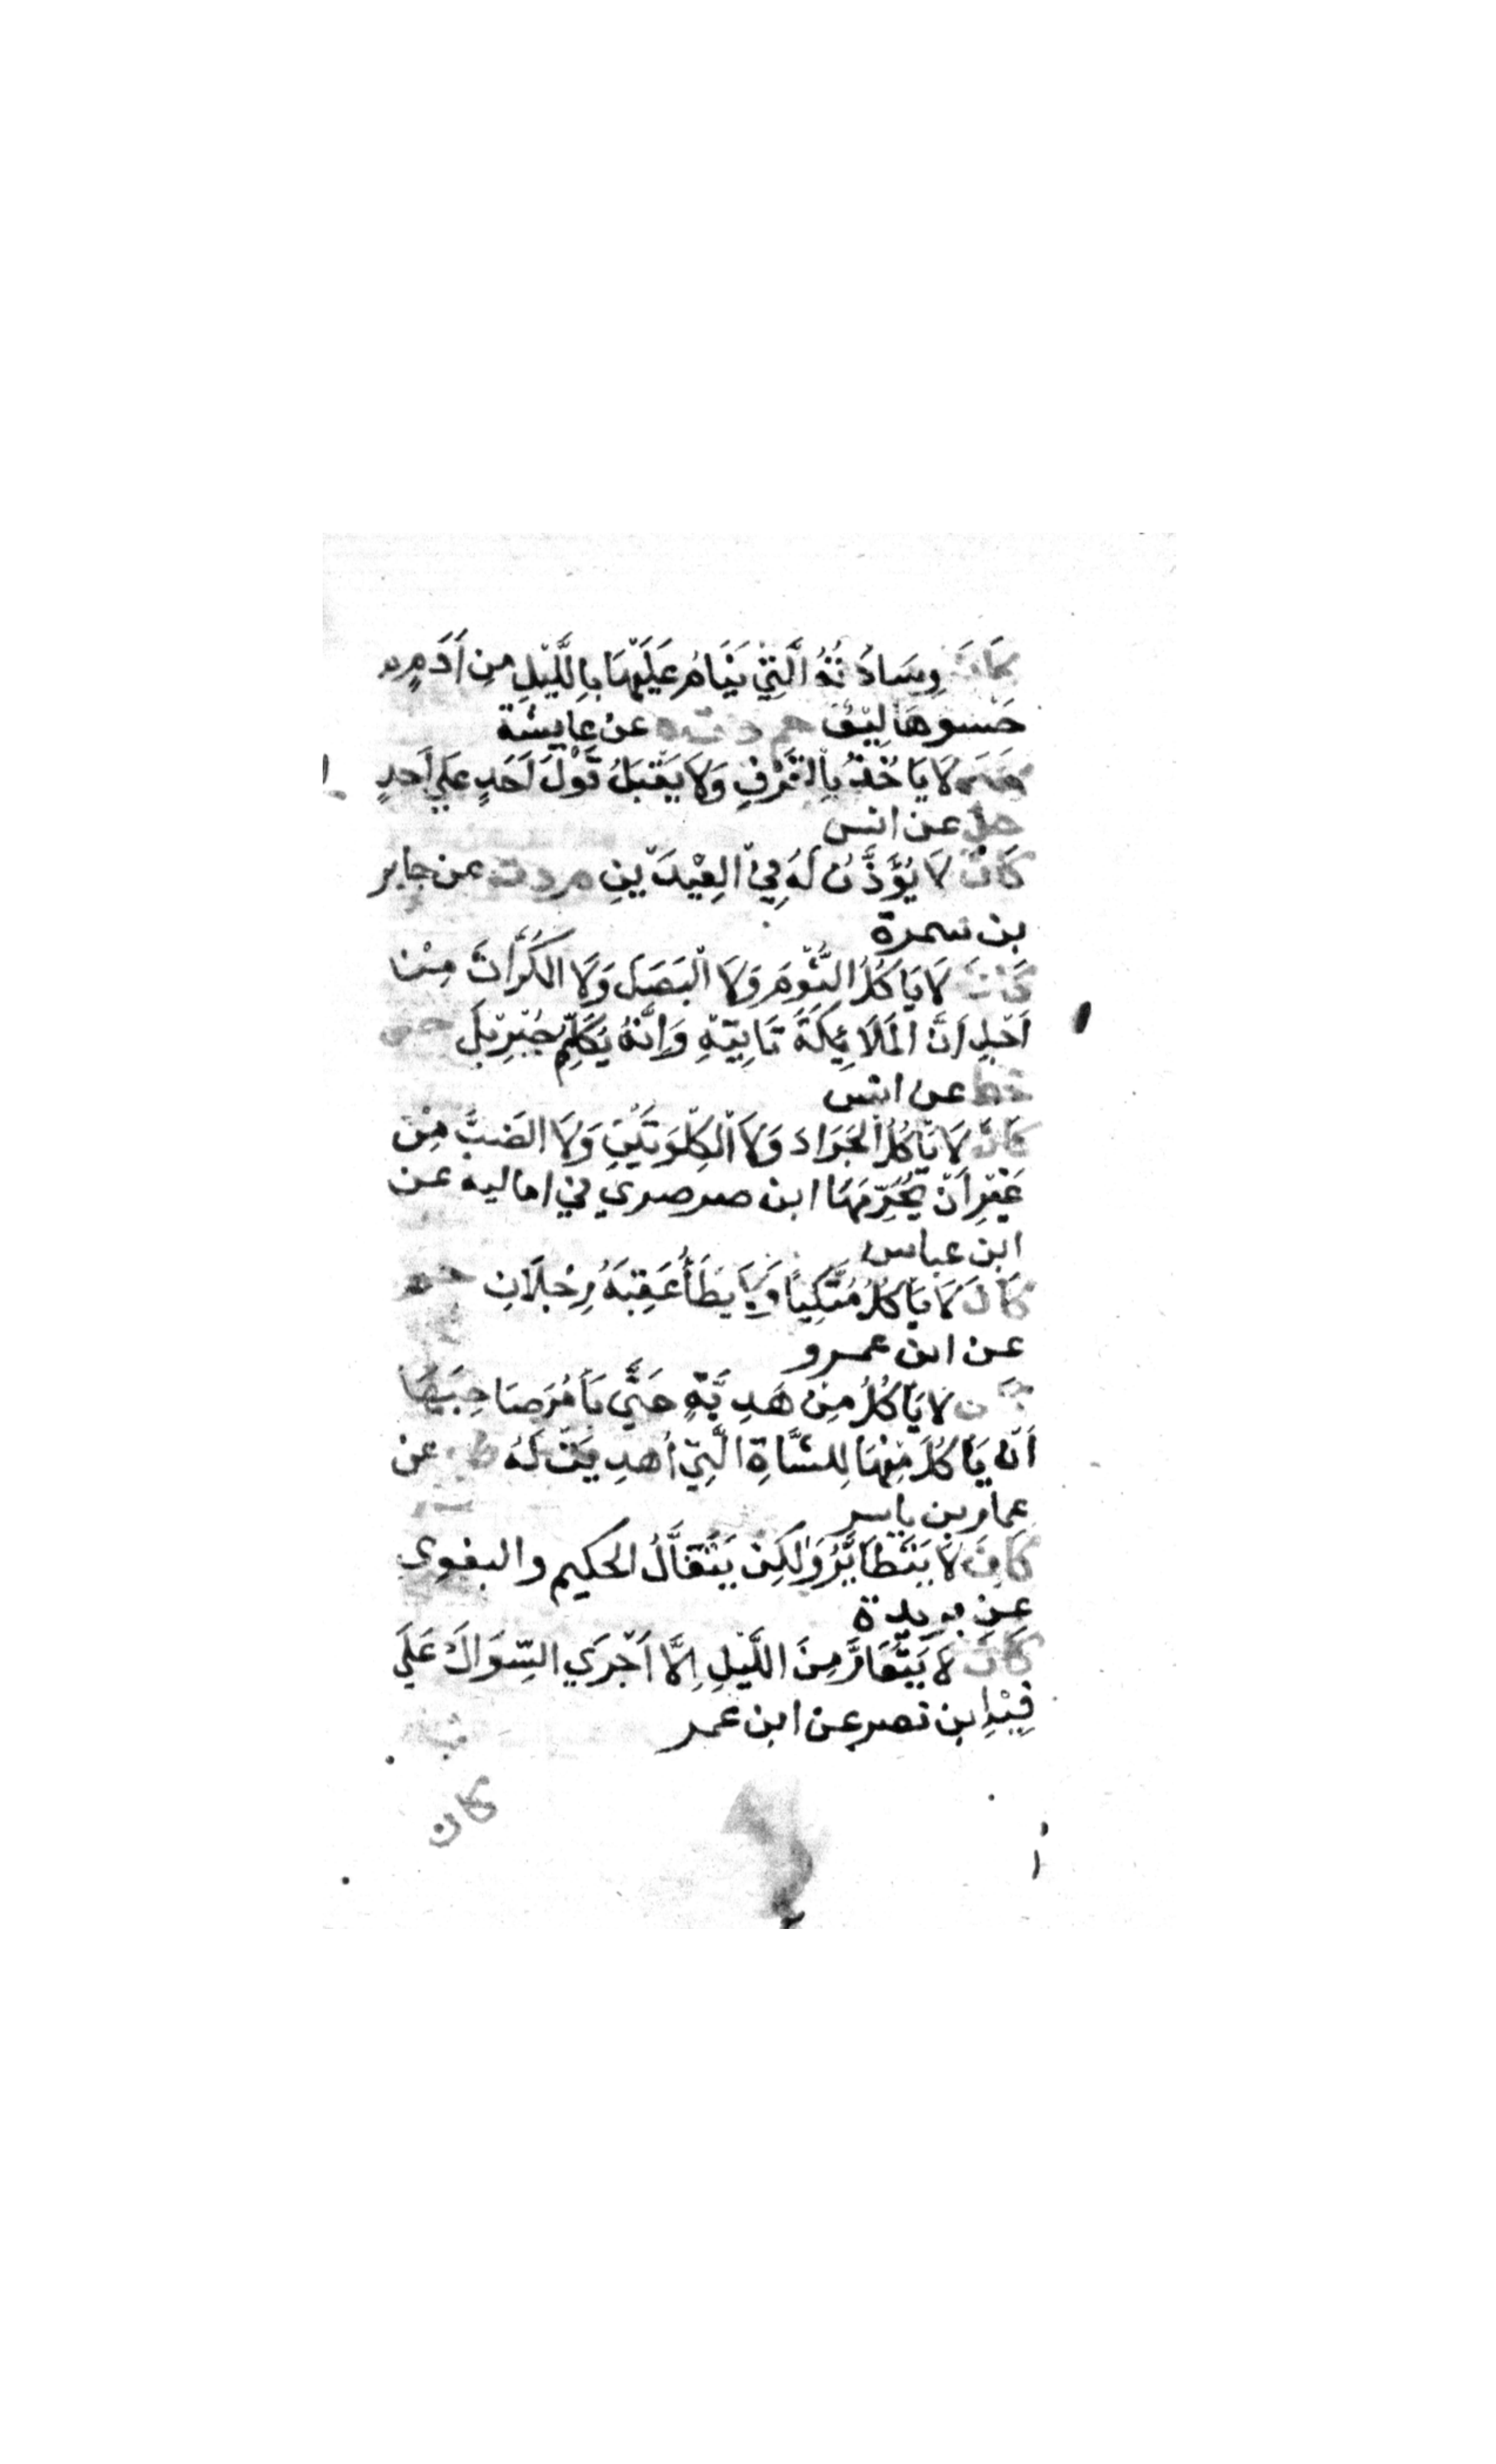 كَانَ وِسَادَتُهُ الَّتِيْ يَنَامُ عَلَيْهَا بِاللَّيْلِ مِنِ اَدَمٍ
حَشْوهَا لِيْفٌ حم د ت ه عن عايشة
كان لَا يَاخُذُ بِالْقَرْفِ وَلَا يَقْبَلُ قَوْلَ اَحَدٍ عَلَي اَحَدٍ
حل عن انس
كَانَ لَا يُؤَذَّنُ لَهُ فِيْ الْعِيْدَيْنِ م د ت عن جابر
بن سمرة
كَانَ لَا يَاكُلُ الثُّوْمَ وَلَا الْبَصَلَ وَلَا الْكُرَّاثَ مِنْ
اَجْلِ اَنَّ الْمَلَائِكَةَ تَايِتيْهِ وَاِنَّهُ يُكَلِّمُ جِبْرِيْلَ
خط عن انس
كَانَ لَا يَاكُلُ الْجَرَادَ وَلَا الْكِلْوَتَيْنِ وَلَا الضَبَّ مِنْ
غَيْرِ اَنْ يُحَرِّمَهَا ابن صرصري في اماليه عن
ابن عباس
كَانَ لَا يَاكُلُ مُتَّكِيًا وَلَا يَطَأُ عَقِبَهُ رِجْلَانِ حم
عن ابن عمرو
كان لَا يَاكُلُ مِنْ هَدِيَّةٍ حَتَّي يَاْمُرَ صَاحِبَهَا
اَنْ يَاكُلَ مِنْهَا لِلشَّاةِ الَّتِيْ اُهدِيَتْ لَهُ طب عن
عمار بن ياسر
كَانَ لَا يَتَطَايَّرُ وَلٰكِنْ يَتَفَاَّلُ الحكيم والبغوي
عن بريدة
كَانَ لَا يَتَعَارُّ مِنَ اللَّيْلِ اِلَّا اَجْرَي السِّوَاكَ عَلَي
فِيْهِ ابن نصر عن ابن عمر
كان